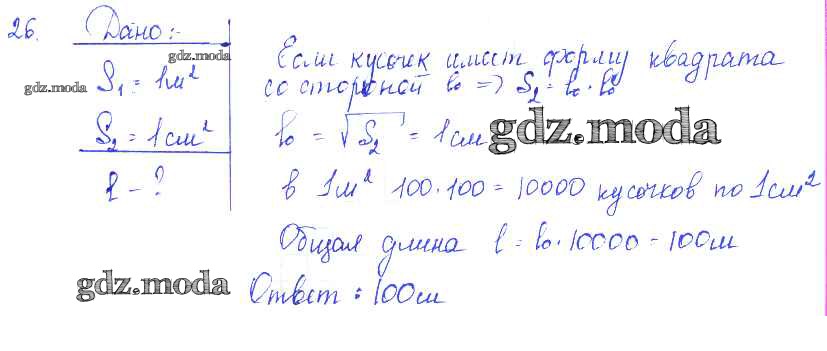 26. Дано:
gdz.moda
gdz.moda
S₁ = 1м²
S₂ = 1см²
l - ?
Если кусочек имеет форму квадрата
со стороной l₀ => S₂ = l₀ · l₀
l₀ = √S₂ = 1см
gdz.moda
в 1м² 100·100 = 10000 кусочков по 1см²
Общая длина l = l₀ · 10000 = 100м
gdz.moda
Ответ: 100м